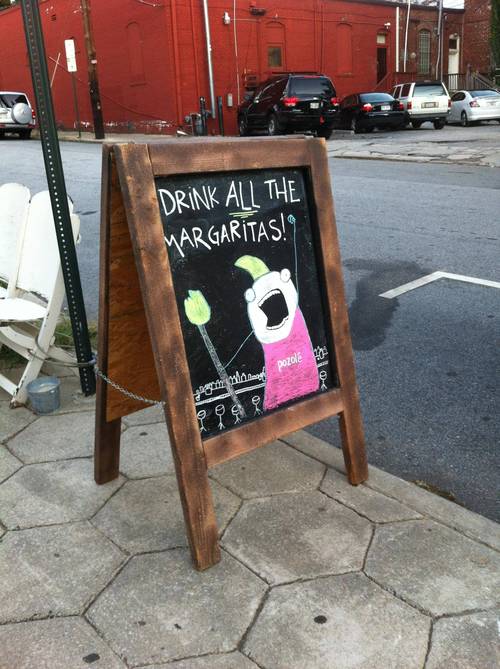 DRiNK ALL THE
MARGARiTAS!
pozole